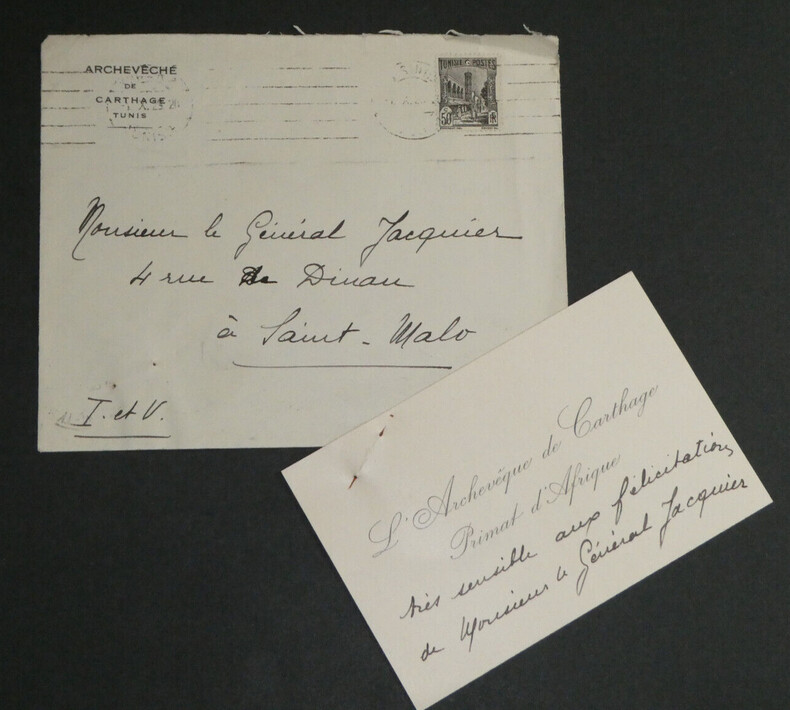 ARCHEVÊCHÉ
DE
CARTHAGE
TUNIS
TUNISIE POSTES
50
Monsieur le Général Jacquier
4 rue de Dinan
à Saint-Malo
I. et V.
L'Archevêque de Carthage
Primat d'Afrique
très sensible aux félicitations
de Monsieur le Général Jacquier